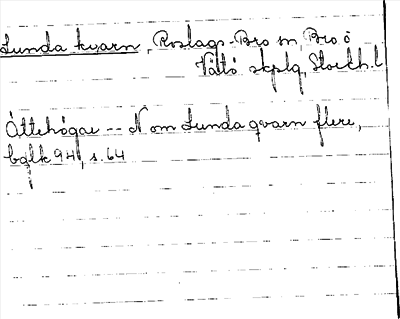 Lunda kvarn, Roslags-Bro sn, Bro o
Vättö skplg, Stockh.l
Åttehögar -- N om Lunda qvarn flere,
bglk 94, s. 64